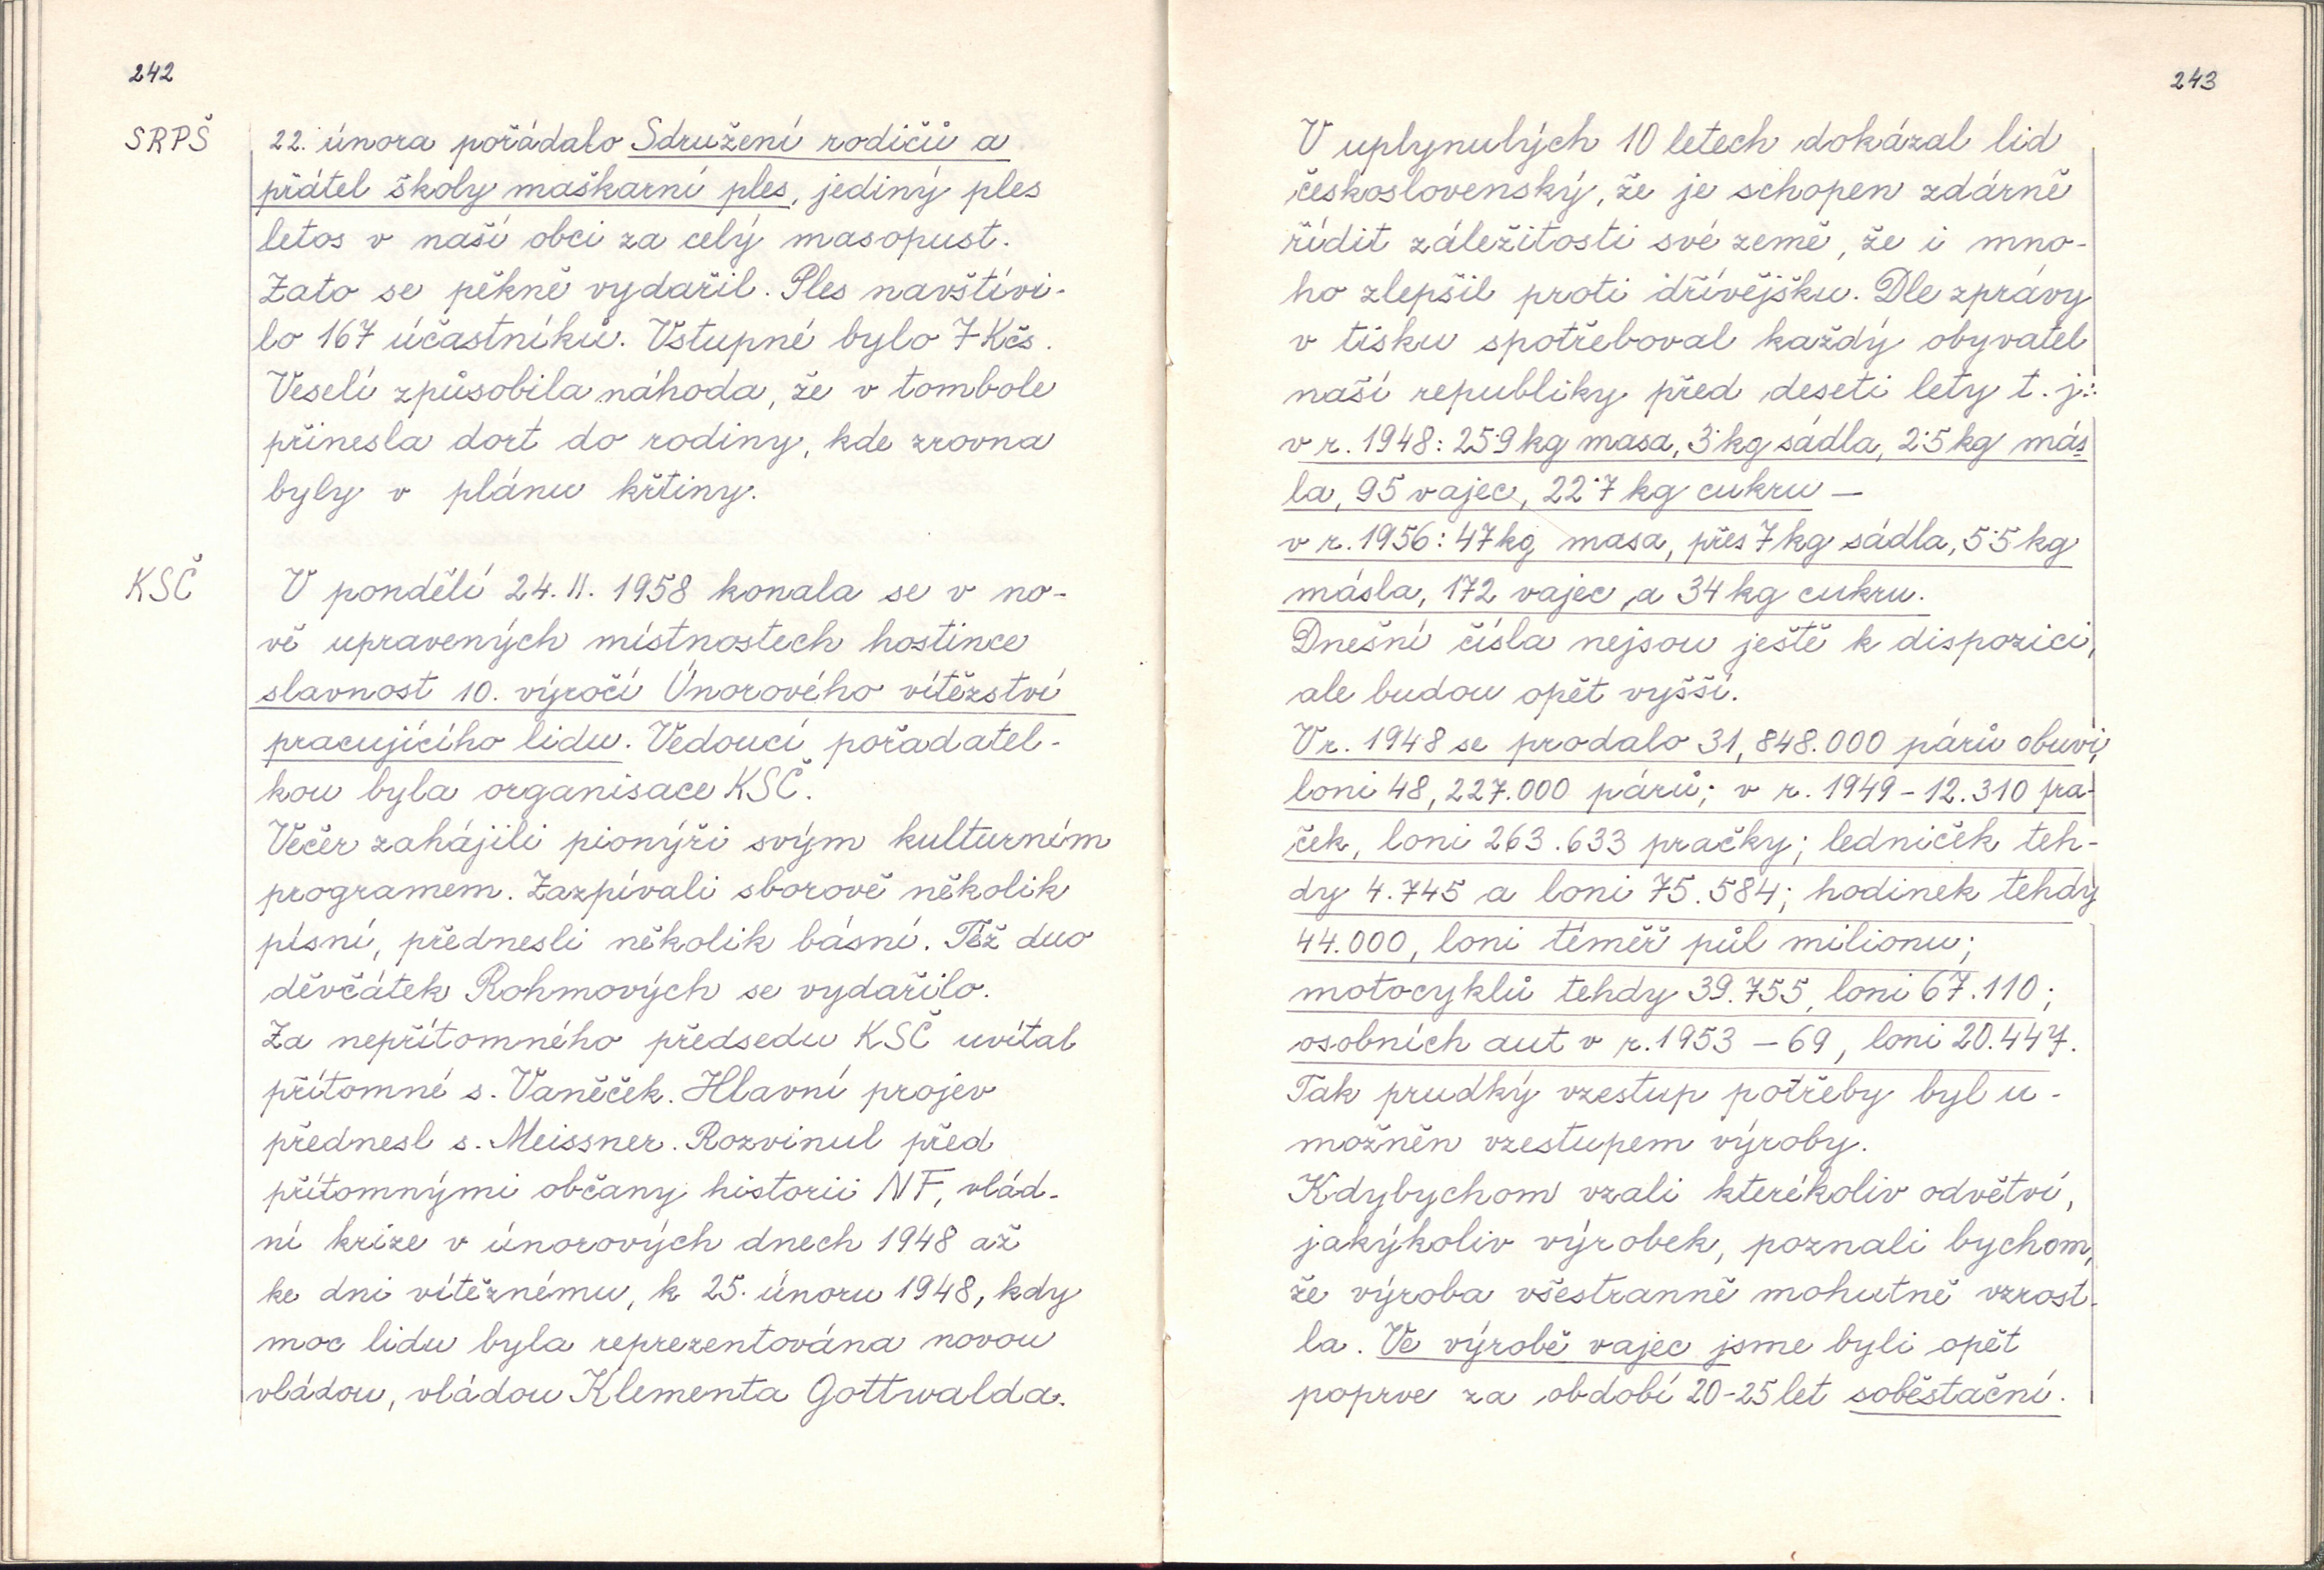 242
SRPŠ
22. února pořádalo Sdružení rodičů a
přátel školy maškarní ples, jediný ples
letos v naší obci za celý masopust.
Zato se pěkně vydařil. Ples navštívi-
lo 167 účastníků. Vstupné bylo 7 Kčs.
Veselí způsobila náhoda, že v tombole
přinesla dort do rodiny, kde zrovna
byly v plánu křtiny.
KSČ
V pondělí 24. II. 1958 konala se v no-
vě upravených místnostech hostince
slavnost 10. výročí Únorového vítězství
pracujícího lidu. Vedoucí pořadatel-
kou byla organisace KSČ.
Večer zahájili pionýři svým kulturním
programem. Zazpívali sborově několik
písní, přednesli několik básní. Též duo
děvčátek Rohmových se vydařilo.
Za nepřítomného předsedu KSČ uvítal
přítomné s. Vaněček. Hlavní projev
přednesl s. Meissner. Rozvinul před
přítomnými občany historii NF, vlád-
ní krize v únorových dnech 1948 až
ke dni vítěznému, k 25. únoru 1948, kdy
moc lidu byla reprezentována novou
vládou, vládou Klementa Gottwalda.
243
V uplynulých 10 letech dokázal lid
československý, že je schopen zdárně
řídit záležitosti své země, že i mno-
ho zlepšil proti dřívějšku. Dle zprávy
v tisku spotřeboval každý obyvatel
naší republiky před deseti lety t. j.:
v r. 1948: 25·9 kg masa, 3 kg sádla, 2·5 kg más
la, 95 vajec, 22·7 kg cukru —
v r. 1956: 47 kg masa, přes 7 kg sádla, 5·5 kg
másla, 172 vajec a 34 kg cukru.
Dnešní čísla nejsou ještě k dispozici,
ale budou opět vyšší.
V r. 1948 se prodalo 31,848.000 párů obuvi,
loni 48,227.000 párů; v r. 1949 - 12.310 pra-
ček, loni 263.633 pračky; ledniček teh-
dy 4.745 a loni 75.584; hodinek tehdy
44.000, loni téměř půl milionu;
motocyklů tehdy 39.755, loni 67.110;
osobních aut v r. 1953 - 69, loni 20.447.
Tak prudký vzestup potřeby byl u-
možněn vzestupem výroby.
Kdybychom vzali kterékoliv odvětví,
jakýkoliv výrobek, poznali bychom,
že výroba všestranně mohutně vzrost-
la. Ve výrobě vajec jsme byli opět
poprve za období 20-25 let soběstační.